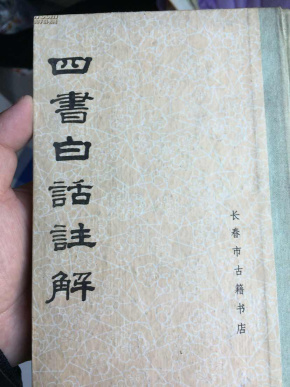 四書白話註解
长春市古籍书店